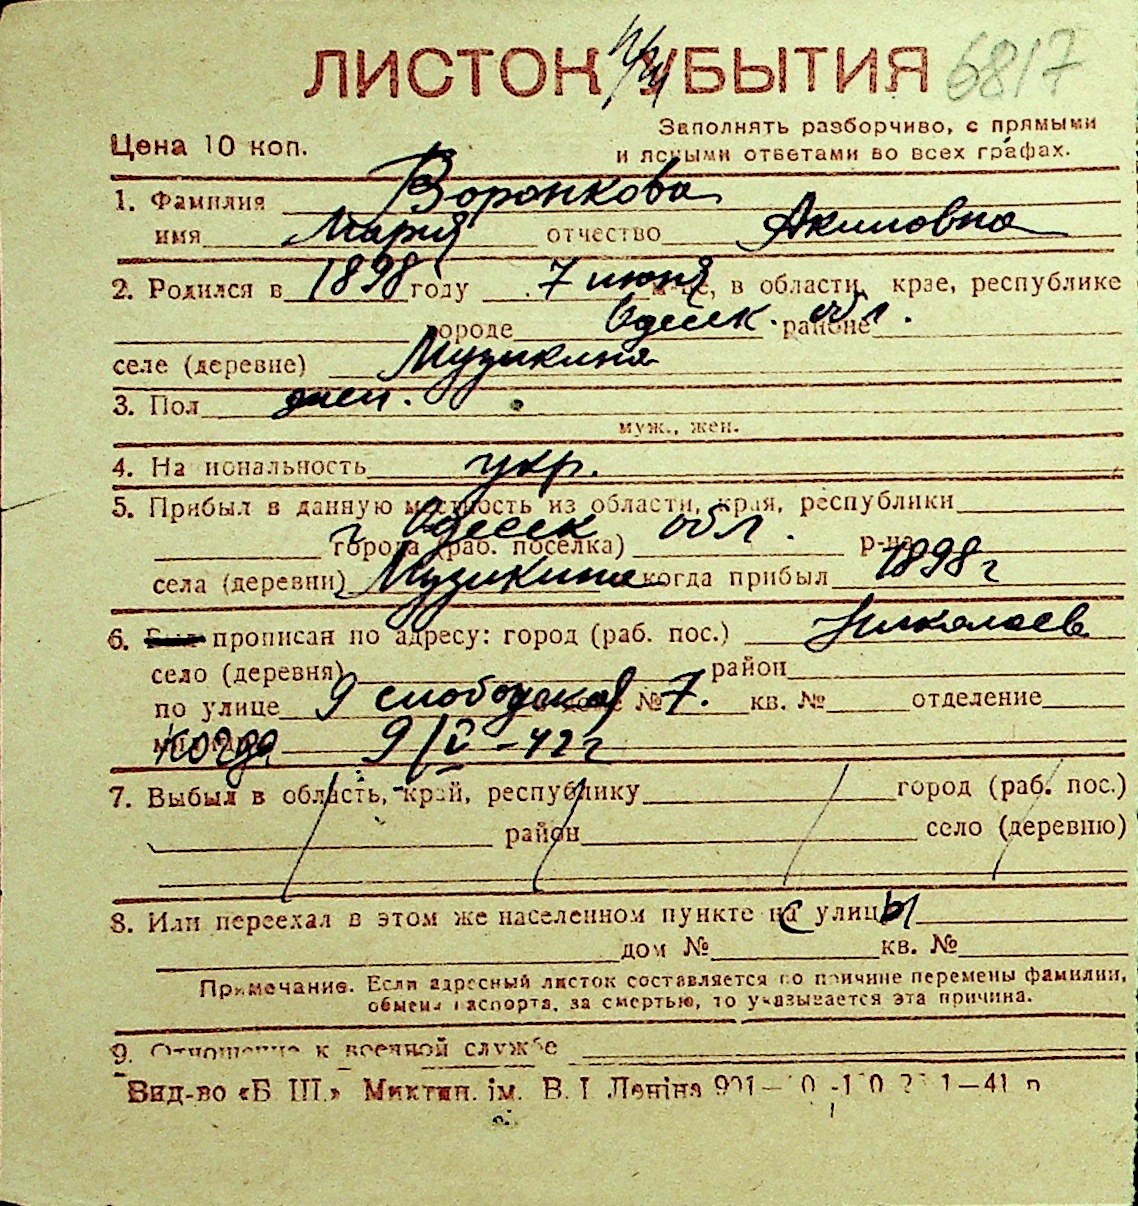 ЛИСТОК УБЫТИЯ 6817
Заполнять разборчиво, с прямыми
Цена 10 коп. и ясными ответами во всех графах.
1. Фамилия Воронкова
имя Мария отчество Акимовна
2. Родился в 1898 году 7 июня м-це, в области, крае, республике
городе Одесск. обл. районе
селе (деревне) Музыкина
3. Пол жен.
муж., жен.
4. Национальность укр.
5. Прибыл в данную местность из области, края, республики
Одесск обл.
города (раб. поселка) р-на
села (деревни) Музыкина когда прибыл 1898 г
6. прописан по адресу: город (раб. пос.) Николаев
село (деревня) район
по улице 9 слободская № 7. кв. № отделение
когда 9/V-42 г
7. Выбыл в область, край, республику город (раб. пос.)
район село (деревню)
8. Или переехал в этом же населенном пункте с улицы
дом № кв. №
Примечание. Если адресный листок составляется по причине перемены фамилии,
обмена паспорта, за смертью, то указывается эта причина.
9. Отношение к военной службе
Вид-во «Б. Ш.» Миктип. ім. В. І Леніна